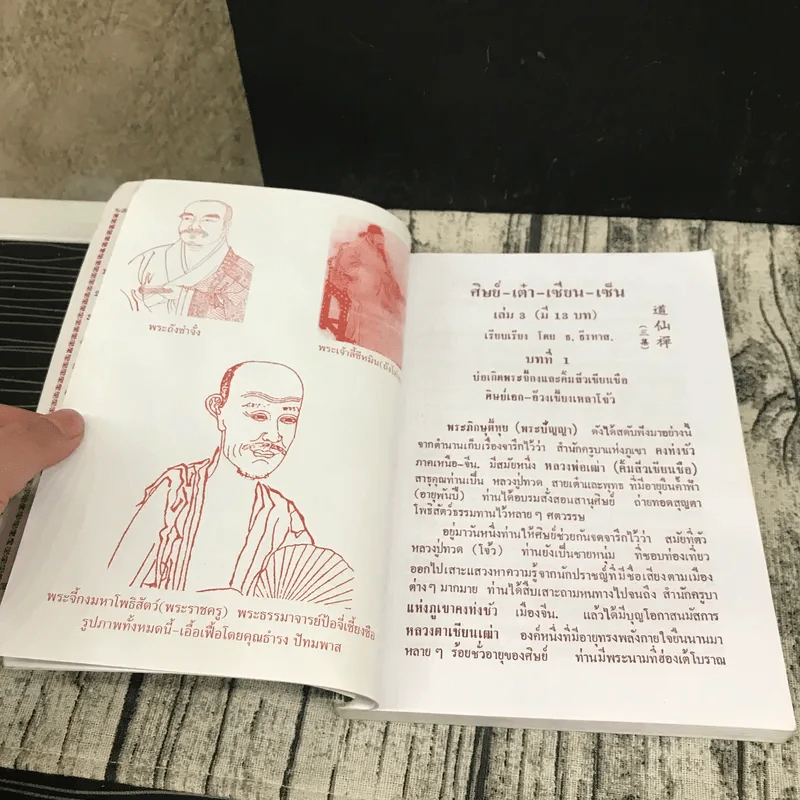 พระถังซำจั๋ง
พระเจ้าลี้ซีหมิน(ถังไท
พระจี้กงมหาโพธิสัตว์(พระราชครู) พระธรรมาจารย์ป๋อจี่เซี้ยงซือ
รูปภาพทั้งหมดนี้-เอื้อเฟื้อโดยคุณธำรง ปัทมพาส
ศิษย์-เต๋า-เซียน-เซ็น
เล่ม 3 (มี 13 บท)
เรียบเรียง โดย ธ. ธีรทาส.
道仙禪
(三集)
บทที่ 1
บ่อเกิดพระจี้กงและคัมลิ้วเขียนซือ
ศิษย์เอก-อ๊วงเขี้ยงเหลาโจ้ว
พระภิกษุตี้หุย (พระปัญญา) ดังได้สดับฟังมาอย่างนี้
จากตำนานเก็บเรื่องจารึกไว้ว่า สำนักครูบาแห่งภูเขา คงท่งซัว
ภาคเหนือ-จีน. มีสมัยหนึ่ง หลวงพ่อเฒ่า (คัมลิ้วเขียนซือ)
สาธุคุณท่านเป็น หลวงปู่ทวด สายเต๋าและพุทธ ที่มีอายุยืนค้ำฟ้า
(อายุพันปี) ท่านได้อบรมสั่งสอนสานุศิษย์ ถ่ายทอดสุญตา
โพธิสัตว์ธรรมทานไว้หลาย ๆ ศตวรรษ
อยู่มาวันหนึ่งท่านให้ศิษย์ช่วยกันจดจารึกไว้ว่า สมัยที่ตัว
หลวงปู่ทวด (โจ้ว) ท่านยังเป็นชายหนุ่ม ที่ชอบท่องเที่ยว
ออกไปเสาะแสวงหาความรู้จากนักปราชญ์ที่มีชื่อเสียงตามเมือง
ต่าง ๆ มากมาย ท่านได้สืบเสาะถามหนทางไปจนถึง สำนักครูบา
แห่งภูเขาคงท่งซัว เมืองจีน. แล้วได้มีบุญโอกาสนมัสการ
หลวงตาเซียนเฒ่า องค์หนึ่งที่มีอายุทรงพลังกายใจยืนนานมา
หลาย ๆ ร้อยชั่วอายุของศิษย์ ท่านมีพระนามที่ฮ่องเต้โบราณ